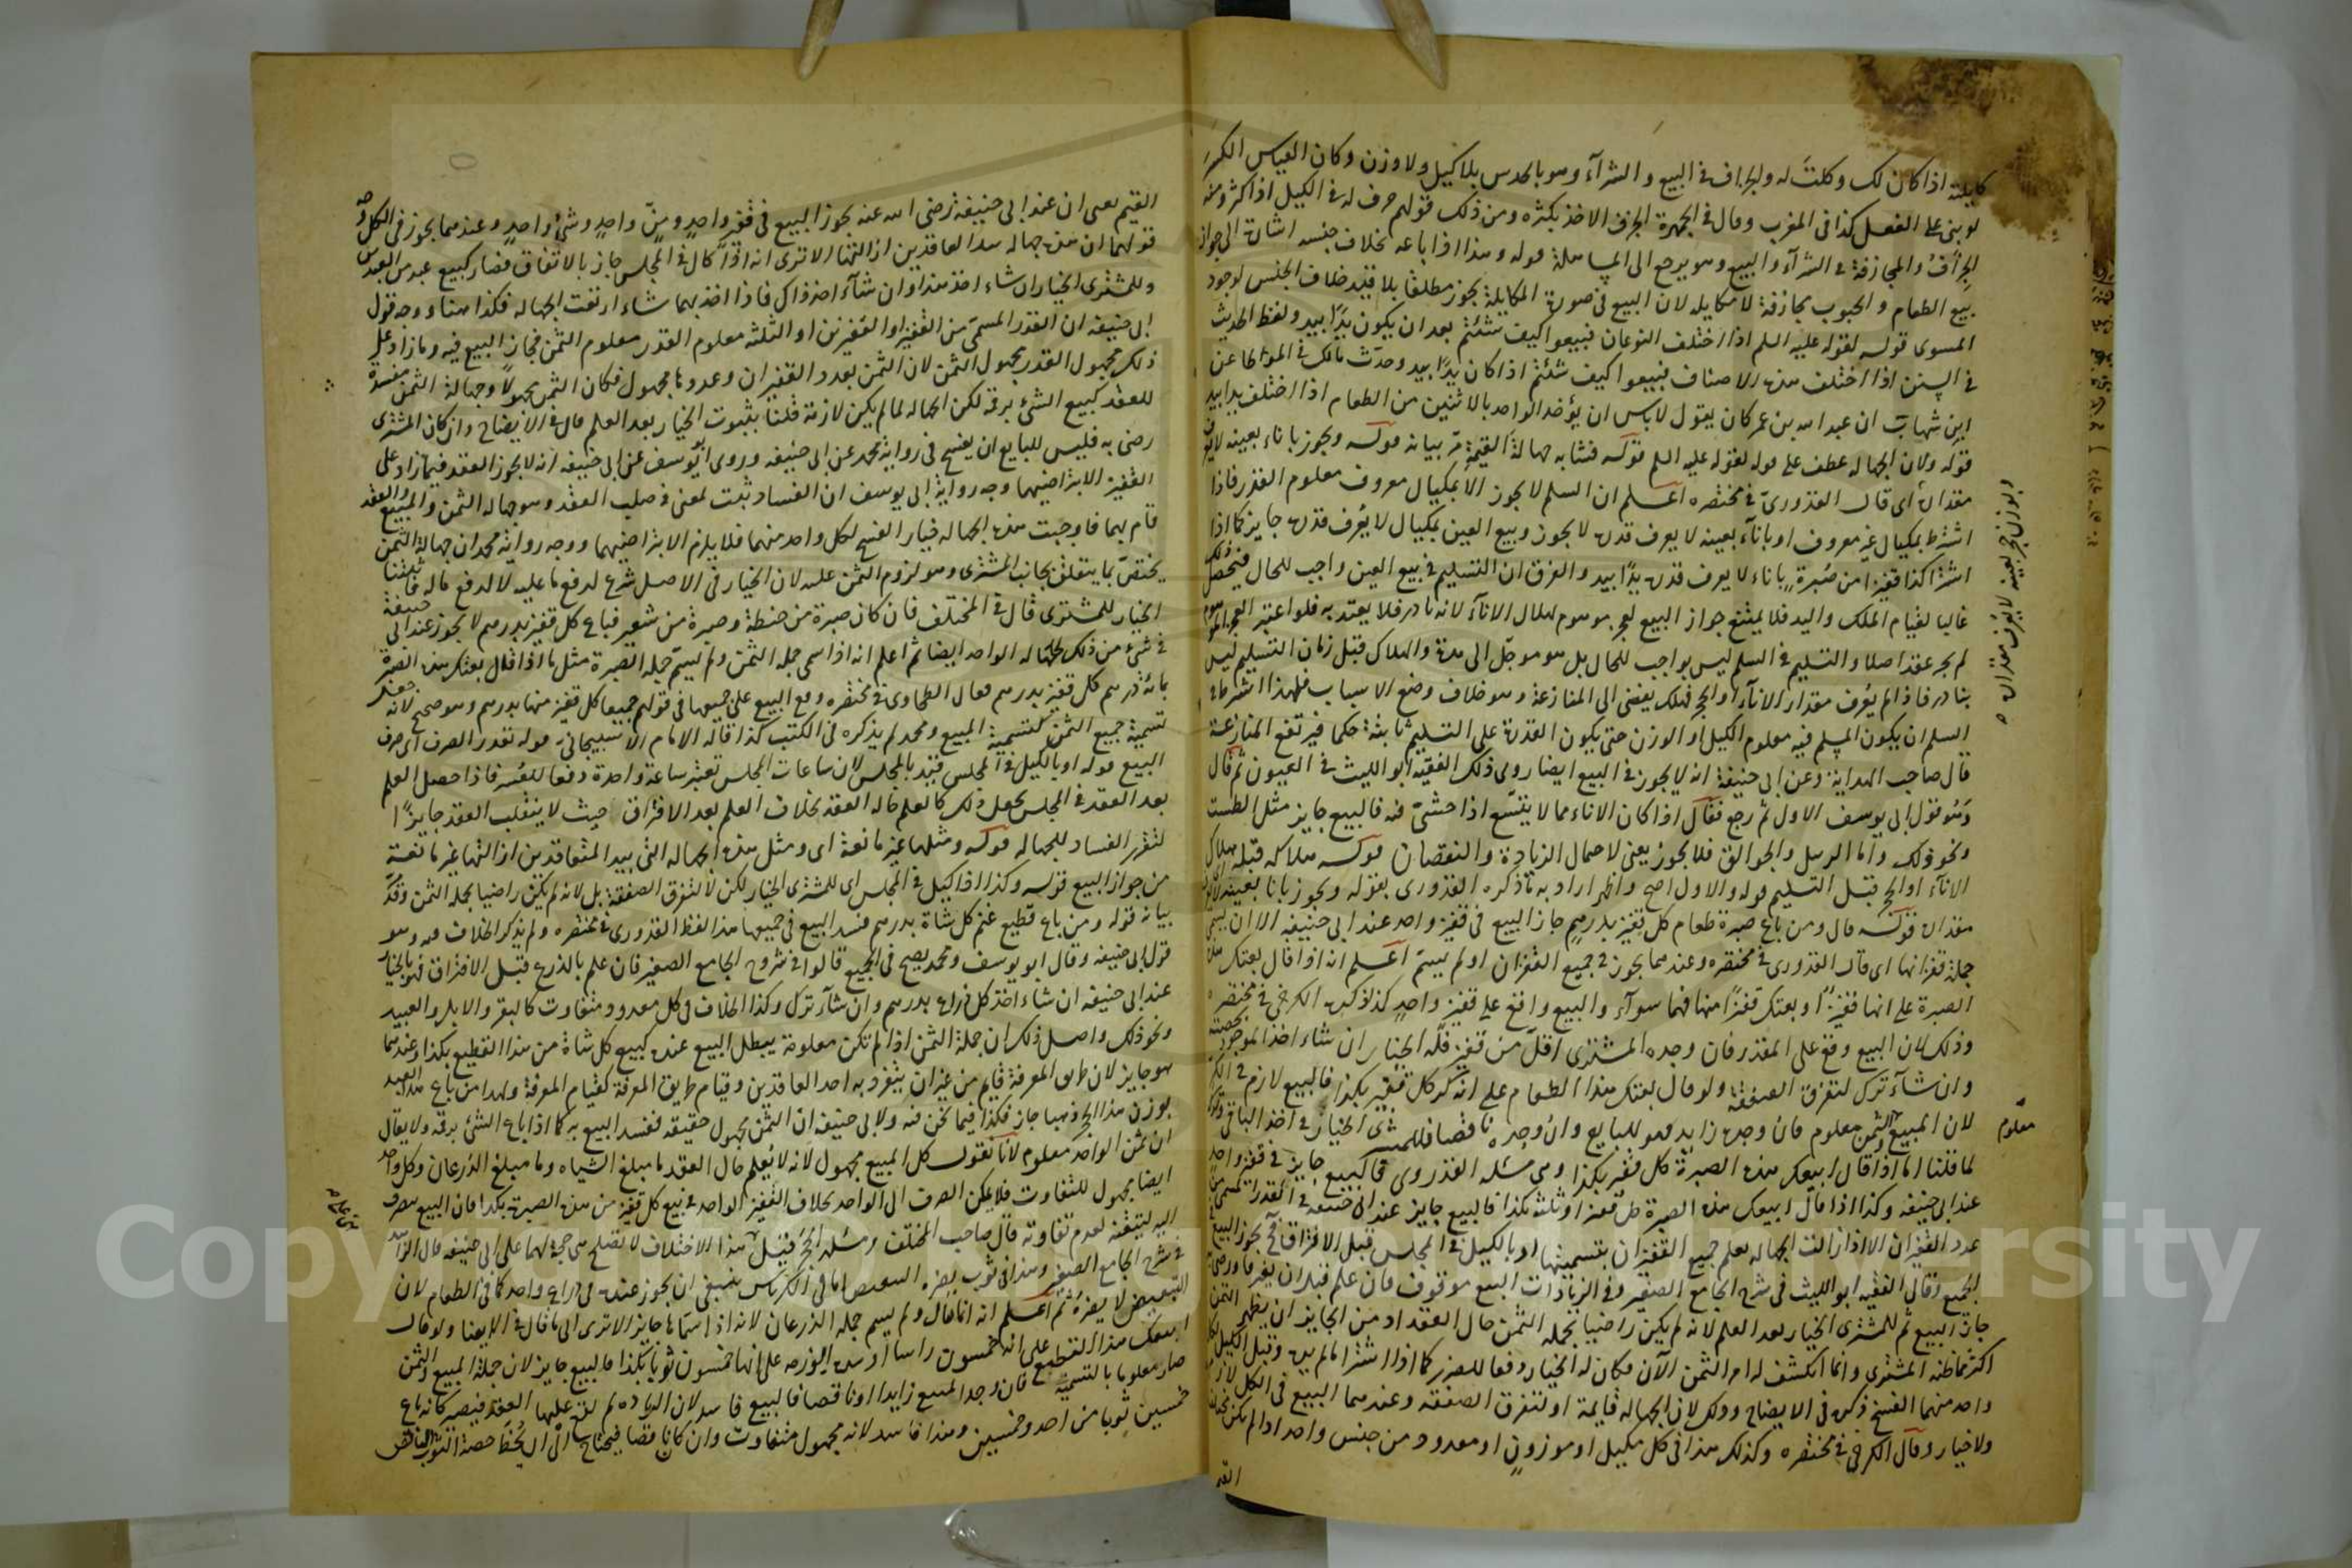 كايلته اذا كان لك وكلت له والجزاف في البيع والشرآء وهو بالحدس بلا كيل ولا وزن وكان القياس الكسر
لو بنى على الفعل كذا في المغرب وقال في الجمهرة الجزف الاخذ بكثره ومن ذلك قولهم جزف له في الكيل اذا اكثر ومنه
الجزاف والمجازفة في الشرآء والبيع وهو يرجع الى المساهلة قوله وهذا اذا باعه بخلاف جنسه اشارة الى جواز
بيع الطعام والحبوب مجازفة لا مكايله لان البيع في صورة المكايلة يجوز مطلقا بلا قيد خلاف الجنس لوجود
المسوى قوله لقوله عليه السلم اذا اختلف النوعان فبيعوا كيف شئتم بعد ان يكون يدا بيد ولفظ الحديث
في السنن اذا اختلف هذه الاصناف فبيعوا كيف شئتم اذا كان يدا بيد وحدث مالك في الموطا عن
ابن شهاب ان عبد الله بن عمر كان يقول لا باس ان يؤخذ الواحد بالاثنين من الطعام اذا اختلف يدا بيد
قوله ولان الجهاله عطف على قوله لقوله عليه السلم قوله فشابه جهالة القيمة مر بيانه قوله ويجوز باناء بعينه لا يعرف
مقداره اى قال القدورى في مختصره اعلم ان السلم لا يجوز الا بمكيال معروف معلوم القدر فاذا
اشترط بمكيال غير معروف او باناء بعينه لا يعرف قدره لا يجوز وبيع العين بمكيال لا يعرف قدره جايز كما اذا
اشترا كذا قفيزا من صبرة باناء لا يعرف قدره يدا بيد والفرق ان التسليم في بيع العين واجب للحال فيحصل
غالبا لقيام الملك واليد فلا يمتنع جواز البيع لوهم موهوم هلاك الانآء لانه نادر فلا يعتد به فلو اعتبر العجز الموهوم
لم يجز عقد اصلا والتسليم في السلم ليس بواجب للحال بل هو مؤجل الى مدة والهلاك قبل زمان التسليم ليس
بنادر فاذا لم يعرف مقدار الانآء او الحجر فهلك يفضى الى المنازعة وهو خلاف وضع الاسباب فلهذا اشترط في
السلم ان يكون المسلم فيه معلوم الكيل او الوزن حتى يكون القدرة على التسليم ثابتة حكما فيرتفع المنازعة
قال صاحب الهداية وعن ابى حنيفة انه لا يجوز في البيع ايضا روى ذلك الفقيه ابو الليث في العيون ثم قال
وهو قول ابى يوسف الاول ثم رجع فقال اذا كان الاناء مما لا يتسع اذا حشى فيه فالبيع جايز مثل الطست
ونحو ذلك واما الزبيل والجوالق فلا يجوز يعنى لاحتمال الزيادة والنقصان قوله هلاكه قبله اى هلاك
الانآء او الحجر قبل التسليم قوله والاول اصح واظهر اراد به ما ذكره القدورى بقوله ويجوز باناء بعينه لا يعرف
مقداره قوله قال ومن باع صبرة طعام كل قفيز بدرهم جاز البيع في قفيز واحد عند ابى حنيفه الا ان يسمى
جملة قفزانها اى قال القدورى في مختصره وعندهما يجوز في جميع القفزان او لم يسم اعلم انه اذا قال بعتك هذه
الصبرة على انها قفيز او بعتك قفيزا منها فهما سوآء والبيع واقع على قفيز واحد كذا ذكره الكرخى في مختصره
وذلك لان البيع وقع على المقدر فان وجده المشترى اقل من قفيز فله الخيار ان شاء اخذ الموجود بحصته
وان شآء ترك لتفرق الصفقة ولو قال بعتك هذا الطعام على انه كر كل قفيز بكذا فالبيع لازم في الكر
لان المبيع والثمن معلوم فان وجده زايد فهو للبايع وان وجده ناقصا فللمشترى الخيار في اخذ الباقى وتركه
لما قلنا اما اذا قال ابيعك هذه الصبرة كل قفيز بكذا وهى مسئله القدورى فالبيع جايز في قفيز واحد
عند ابى حنيفه وكذا اذا قال ابيعك هذه الصبرة كل قفيزا وثلثه بكذا فالبيع جايز عند ابى حنيفه في القدر المسمى من
عدد القفيزان الا اذا زالت الجهاله بعلم جميع القفزان بتسميتها او بالكيل في المجلس قبل الافتراق فح يجوز البيع في
الجميع وقال الفقيه ابو الليث في شرح الجامع الصغير وفي الزيادات البيع موقوف فان علم قبل ان يفترقا ورضى
جاز البيع ثم للمشترى الخيار بعد العلم لانه لم يكن راضيا بجمله الثمن حال العقد او من الجايز ان يظهر الثمن
اكثر مما ظنه المشترى وانما انكشف له امر الثمن الآن فكان له الخيار دفعا للضرر كما اذا اشترا ما لم يره وقبل الكيل لكل
واحد منهما الفسخ ذكره في الايضاح وذلك لان الجهاله قايمة او لتفرق الصفقه وعندهما البيع في الكل لازم
ولا خيار وقال الكرخى في مختصره وكذلك هذا في كل مكيل او موزون او معدود من جنس واحد اذا لم يكن مختلف
القيم
وبوزن حجر بعينه لا يعرف مقداره
معلوم
القيم يعنى ان عند ابى حنيفة رضى الله عنه يجوز البيع في قفيز واحد ومن واحد وشئ واحد وعندهما يجوز في الكل وجه
قولهما ان هذه جهاله بيد العاقدين ازالتها الا ترى انه اذا كال في المجلس جاز بالاتفاق فصار كبيع عبد من العبدين
وللمشترى الخيار ان شاء اخذ هذا وان شآء اخذ ذاك فاذا اخذ ايهما شاء ارتفعت الجهاله فكذا هنا ووجه قول
ابى حنيفه ان القدر المسمى من القفيز او القفيزين او الثلثه معلوم القدر معلوم الثمن فجاز البيع فيه وما زاد على
ذلك مجهول القدر مجهول الثمن لان الثمن بعدد القفيزان وعددها مجهول فكان الثمن مجهولا وجهالة الثمن مفسدة
للعقد كبيع الشئ برقمه لكن الجهاله لما لم يكن لازمة قلنا بثبوت الخيار بعد العلم قال في الايضاح وان كان المشترى
رضى به فليس للبايع ان يفسخ في رواية محمد عن ابى حنيفه وروى ابو يوسف عن ابى حنيفه انه لا يجوز العقد فيما زاد على
القفيز الا بتراضيهما وجه رواية ابى يوسف ان الفساد ثبت لمعنى في صلب العقد وهو جهاله الثمن والمبيع والعقد
قام بهما فاوجبت هذه الجهاله خيار الفسخ لكل واحد منهما فلا يلزم الا بتراضيهما ووجه رواية محمد ان جهالة الثمن
يختص بما يتعلق بجانب المشترى وهو لزوم الثمن عليه لان الخيار في الاصل شرع لدفع ما عليه لا لدفع ماله فاثبتنا
الخيار للمشترى قال في المختلف فان كان صبرة من حنطة وصبرة من شعير فباع كل قفيز بدرهم لا يجوز عند ابى حنيفة
في شئ من ذلك لجهاله الواحد ايضا ثم اعلم انه اذا سمى جمله الثمن ولم يسم جمله الصبرة مثل ما اذا قال بعتك هذه الصبرة
بمائة درهم كل قفيز بدرهم فقال الطحاوى في مختصره وقع البيع على جميعها في قولهم جميعا كل قفيز منها بدرهم وهو صحيح لانه جعل
تسمية جميع الثمن كتسمية المبيع ومحمد لم يذكره في الكتب كذا قاله الامام الاسبيجابى قوله تعذر الصرف اى صرف
البيع قوله او بالكيل في المجلس قيد بالمجلس لان ساعات المجلس تعتبر ساعة واحدة دفعا للعسر فاذا حصل العلم
بعد العقد في المجلس جعل ذلك كالعلم حاله العقد بخلاف العلم بعد الافتراق حيث لا ينقلب العقد جايزا
لتقرر الفساد للجهاله قوله ومثلها غير مانعة اى ومثل هذه الجهاله التى بيد المتعاقدين ازالتها غير مانعة
من جواز البيع قوله وكذا اذا كيل في المجلس اى للمشترى الخيار لكن لا لتفرق الصفقة بل لانه لم يكن راضيا بجمله الثمن وقد مر
بيانه قوله ومن باع قطيع غنم كل شاة بدرهم فسد البيع في جميعها هذا لفظ القدورى في مختصره ولم يذكر الخلاف فيه وهو
قول ابى حنيفه وقال ابو يوسف ومحمد يصح في الجميع قالوا في شروح الجامع الصغير فان علم بالذرع قبل الافتراق فهو بالخيار
عند ابى حنيفه ان شاء اخذ كل ذراع بدرهم وان شآء ترك وكذا الخلاف في كل معدود متفاوت كالبقر والابل والعبيد
ونحو ذلك واصل ذلك ان جملة الثمن اذا لم تكن معلومة يبطل البيع عنده كبيع كل شاة من هذا القطيع بكذا وعندهما
هو جايز لان طريق المعرفة قايم من غير ان يتفرد به احد العاقدين وقيام طريق المعرفة كقيام المعرفة ولهذا من باع هذا العبد
بوزن هذا الحجر ذهبا جاز فكذا فيما نحن فيه ولابى حنيفه ان الثمن مجهول حقيقه ففسد البيع به كما اذا باع الشئ برقمه ولا يقال
ان ثمن الواحد معلوم لانا نقول كل المبيع مجهول لانه لا يعلم حال العقد ما مبلغ الشياه وما مبلغ الذرعان وكل واحد
ايضا مجهول للتفاوت فلا يمكن الصرف الى الواحد بخلاف القفيز الواحد في بيع كل قفيز من هذه الصبرة بكذا فان البيع يصرف
اليه لتيقنه لعدم تفاوته قال صاحب المختلف ومسئله الحجر قيل هذا الاختلاف لا تصلح هى حجة لهما على ابى حنيفه قال الزاهد
في شرح الجامع الصغير وهذا في ثوب يضره التبعيض اما في الكرباس ينبغى ان يجوز عنده في ذراع واحد كما في الطعام لان
التبعيض لا يضره ثم اعلم انه انما قال ولم يسم جمله الذرعان لانه اذا سماها جايز الا ترى الى ما قال في الايضاح ولو قال
ابيعك هذا القطيع على انه خمسون راسا او هذه الرزمه على انها خمسون ثوبا بكذا فالبيع جايز لان جملة المبيع والثمن
صار معلوما بالتسمية فان وجد المبيع زايدا او ناقصا فالبيع فاسد لان الزياده لم يقع عليها العقد فيصير كانه باع
خمسين ثوبا من احد وخمسين وهذا فاسد لانه مجهول متفاوت وان كان ناقصا فيحتاج الى ان يحط حصة الثوب الناقص
Copyright © King Saud University